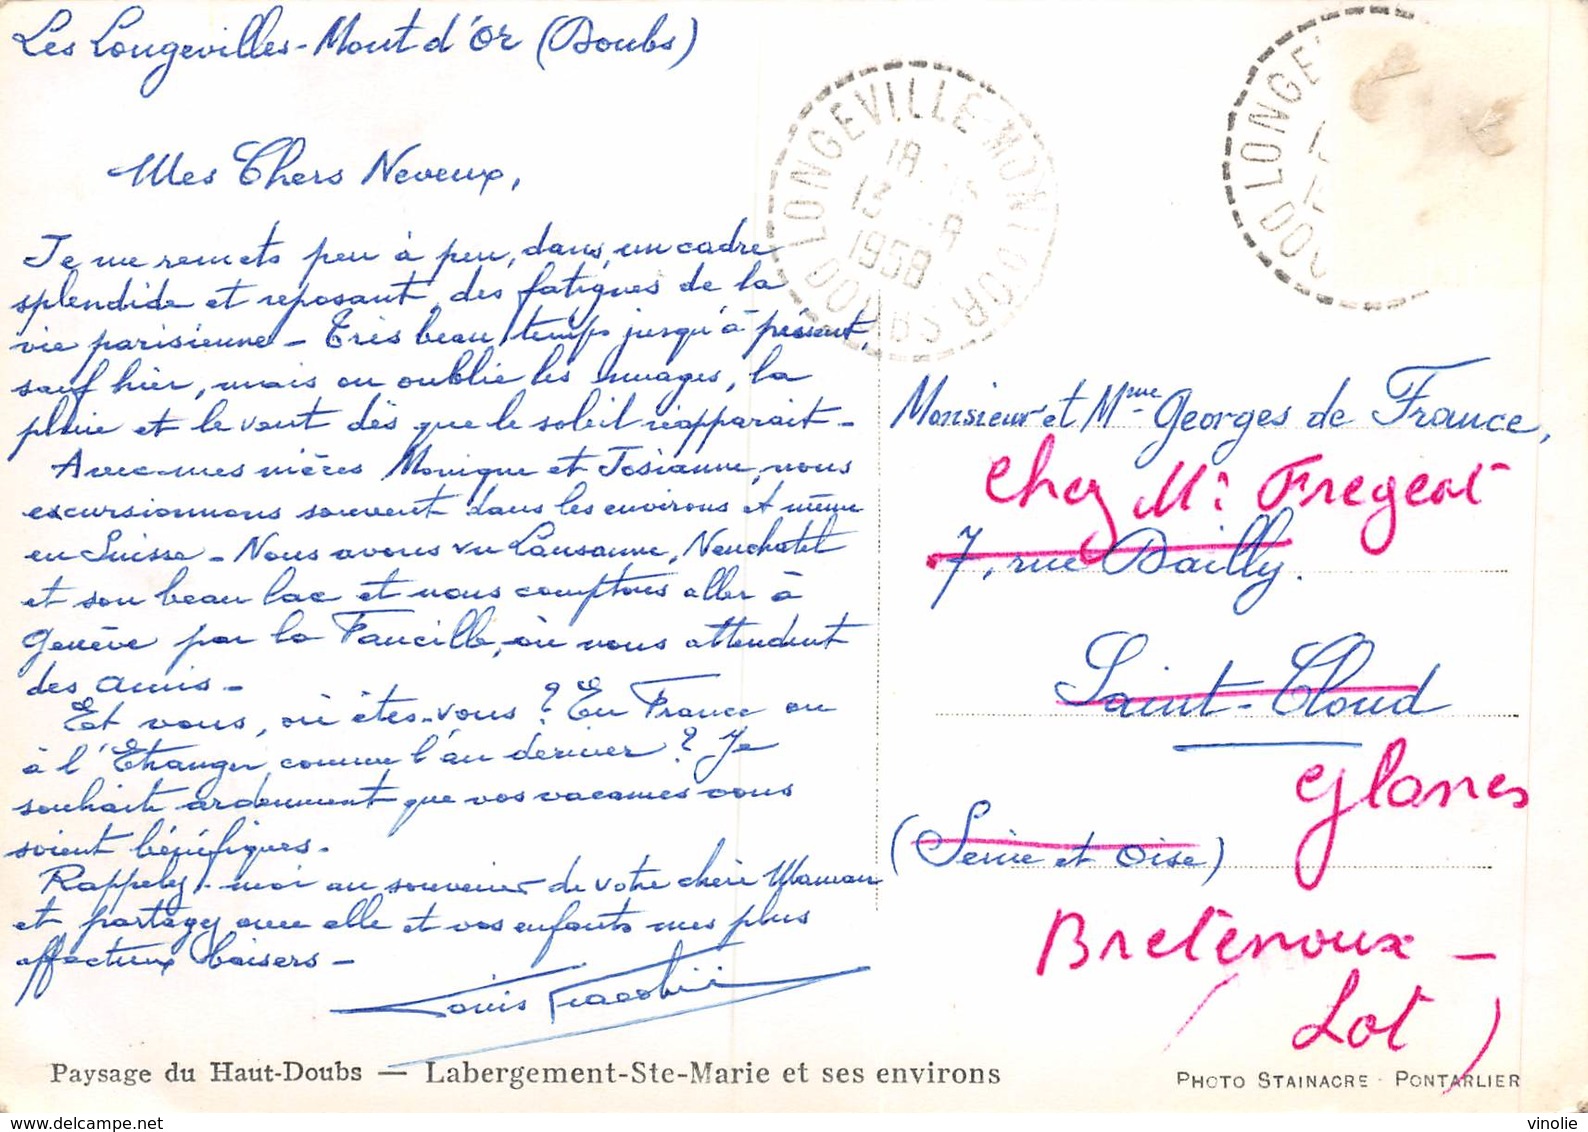 Les Longevilles-Mont d'Or (Doubs)
Mes Chers Neveux,
Je me remets peu à peu, dans un cadre
splendide et reposant, des fatigues de la
vie parisienne - Très beau temps jusqu'à présent,
sauf hier, mais on oublie les nuages, la
pluie et le vent dès que le soleil réapparait -
Avec mes nièces Monique et Josianne, nous
excursionnons souvent dans les environs et même
en Suisse - Nous avons vu Lausanne, Neuchatel
et son beau lac et nous comptons aller à
Genève par la Faucille, où nous attendent
des amis -
Et vous, où êtes-vous ? En France ou
à l'Etranger, comme l'an dernier ? Je
souhaite ardemment que vos vacances vous
soient bénéfiques.
Rappelez-moi au souvenir de votre chère Maman
et partagez avec elle et vos enfants mes plus
affectueux baisers -
Louis
Paysage du Haut-Doubs — Labergement-Ste-Marie et ses environs
LONGEVILLE-MONT D'OR
DOUBS
18
13
1958
LONGE
DOU
Monsieur et Mme Georges de France,
chez Mr Fregeat
7, rue Dailly.
Saint-Cloud
Glanes
(Seine et Oise)
Bretenoux -
(Lot)
PHOTO STAINACRE - PONTARLIER
vinolie